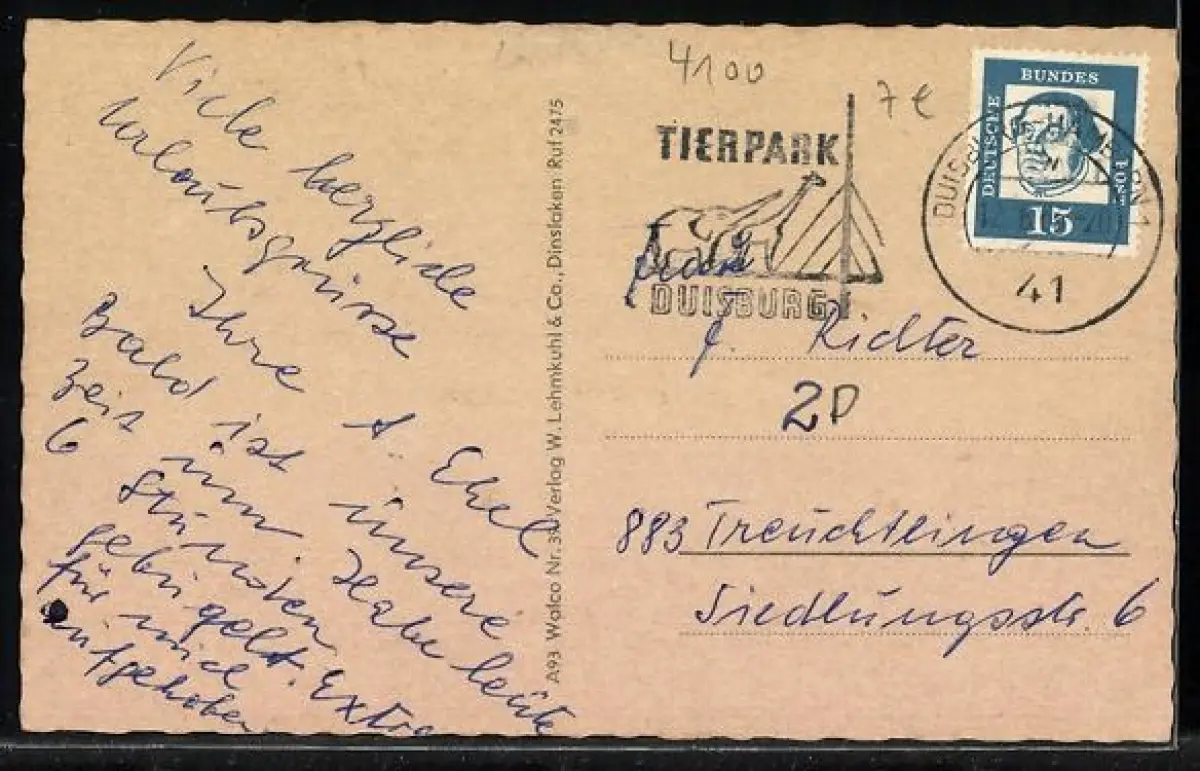 Viele herzliche
Urlaubsgrüsse
Ihre A. Ebel
Bald ist unsere
Zeit um. Habe heute
6 Stunden
gebügelt. Extra
für mich
aufgehoben
A93 Walco Nr. 39 Verlag W. Lehmkuhl & Co., Dinslaken Ruf 2475
4100
7€
TIERPARK
DUISBURG
DEUTSCHE
BUNDES
POST
15
41
Richter
2D
883 Treuchtlingen
Siedlungsstr. 6